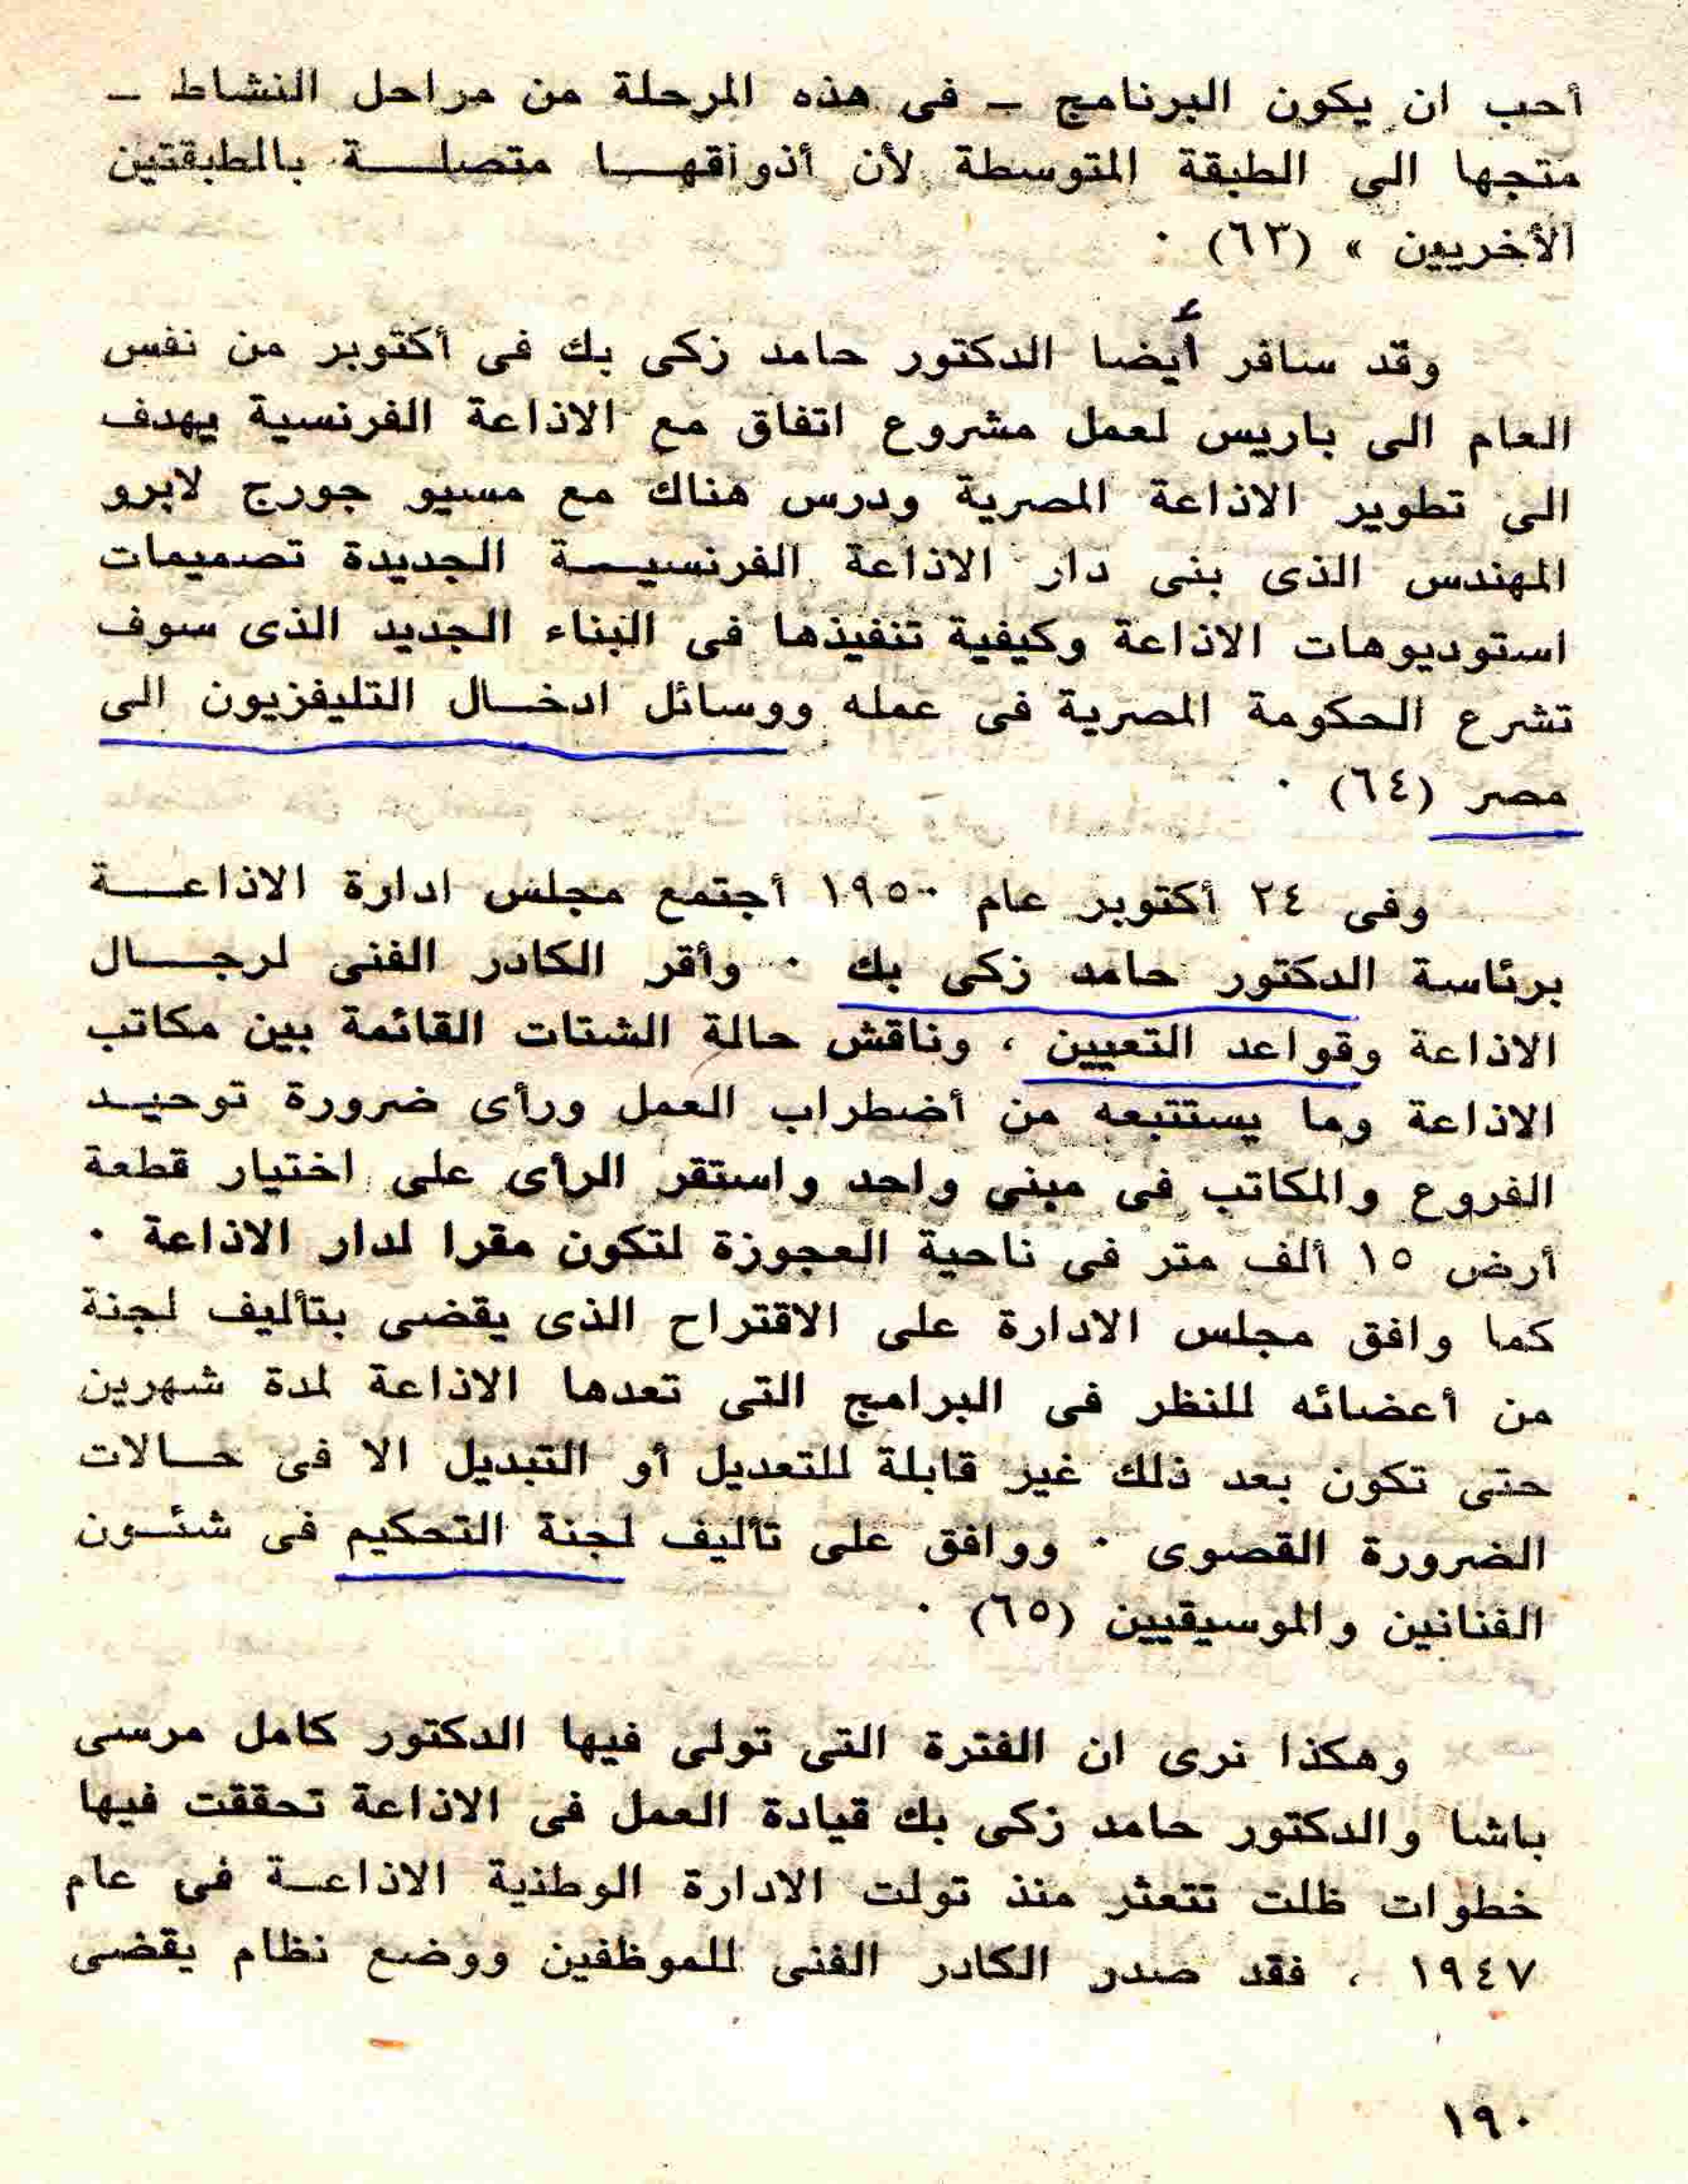 أحب ان يكون البرنامج ــ فى هذه المرحلة من مراحل النشاط ــ
متجها الى الطبقة المتوسطة لأن أذواقهــا متصلــة بالطبقتين
الأخريين » (٦٣) ٠
وقد سافر أيضا الدكتور حامد زكى بك فى أكتوبر من نفس
العام الى باريس لعمل مشروع اتفاق مع الاذاعة الفرنسية يهدف
الى تطوير الاذاعة المصرية ودرس هناك مع مسيو جورج لابرو
المهندس الذى بنى دار الاذاعة الفرنسيــة الجديدة تصميمات
استوديوهات الاذاعة وكيفية تنفيذها فى البناء الجديد الذى سوف
تشرع الحكومة المصرية فى عمله ووسائل ادخــال التليفزيون الى
مصر (٦٤) ٠
وفى ٢٤ أكتوبر عام ١٩٥٠ أجتمع مجلس ادارة الاذاعــة
برئاسة الدكتور حامد زكى بك ٠ وأقر الكادر الفنى لرجــال
الاذاعة وقواعد التعيين ، وناقش حالة الشتات القائمة بين مكاتب
الاذاعة وما يستتبعه من أضطراب العمل ورأى ضرورة توحيــد
الفروع والمكاتب فى مبنى واحد واستقر الرأى على اختيار قطعة
أرض ١٥ ألف متر فى ناحية العجوزة لتكون مقرا لدار الاذاعة ٠
كما وافق مجلس الادارة على الاقتراح الذى يقضى بتأليف لجنة
من أعضائه للنظر فى البرامج التى تعدها الاذاعة لمدة شهرين
حتى تكون بعد ذلك غير قابلة للتعديل أو التبديل الا فى حــالات
الضرورة القصوى ٠ ووافق على تأليف لجنة التحكيم فى شئــون
الفنانين والموسيقيين (٦٥) ٠
وهكذا نرى ان الفترة التى تولى فيها الدكتور كامل مرسى
باشا والدكتور حامد زكى بك قيادة العمل فى الاذاعة تحققت فيها
خطوات ظلت تتعثر منذ تولت الادارة الوطنية الاذاعــة فى عام
١٩٤٧ ، فقد صدر الكادر الفنى للموظفين ووضع نظام يقضى
١٩٠